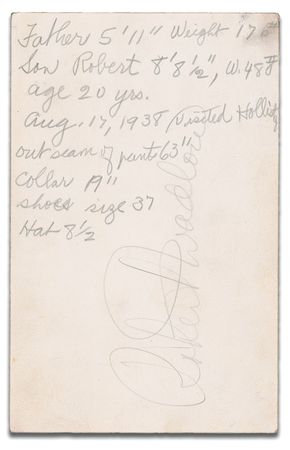 Father 5'11" Weight 170#
Son Robert 8'8½", W. 487
age 20 yrs.
Aug. 17, 1938 Visited Hollis
out seam of pant 63"
Collar 19"
shoes size 37
Hat 8½
Robert Wadlow